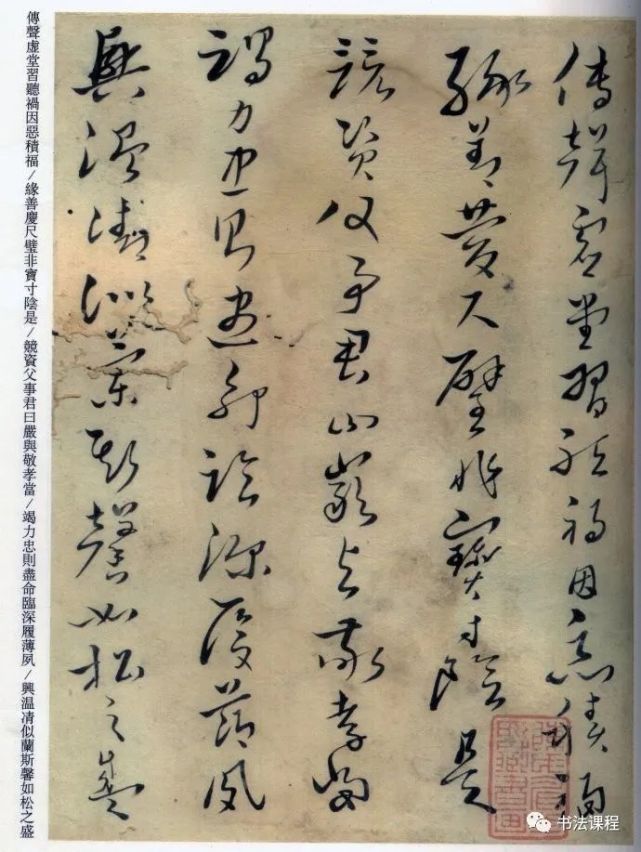 傳聲虛堂習聽禍因惡積福
緣善慶尺璧非寶寸陰是
競資父事君曰嚴與敬孝當
竭力忠則盡命臨深履薄夙
興溫凊似蘭斯馨如松之盛
傳聲虛堂習聽禍因惡積福/緣善慶尺璧非寶寸陰是/競資父事君曰嚴與敬孝當/竭力忠則盡命臨深履薄夙/興溫凊似蘭斯馨如松之盛
书法课程